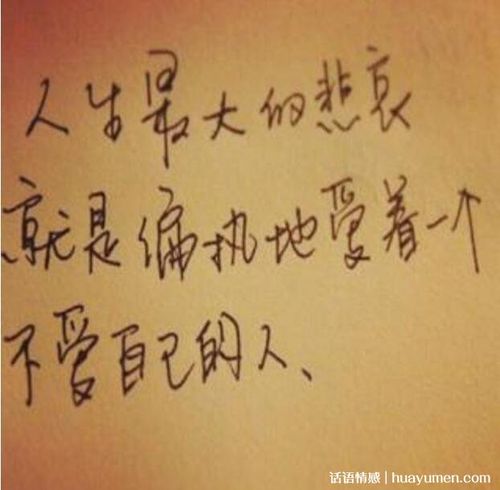 人生最大的悲哀
就是偏执地爱着一个
不爱自己的人、
话语情感 | huayumen.com